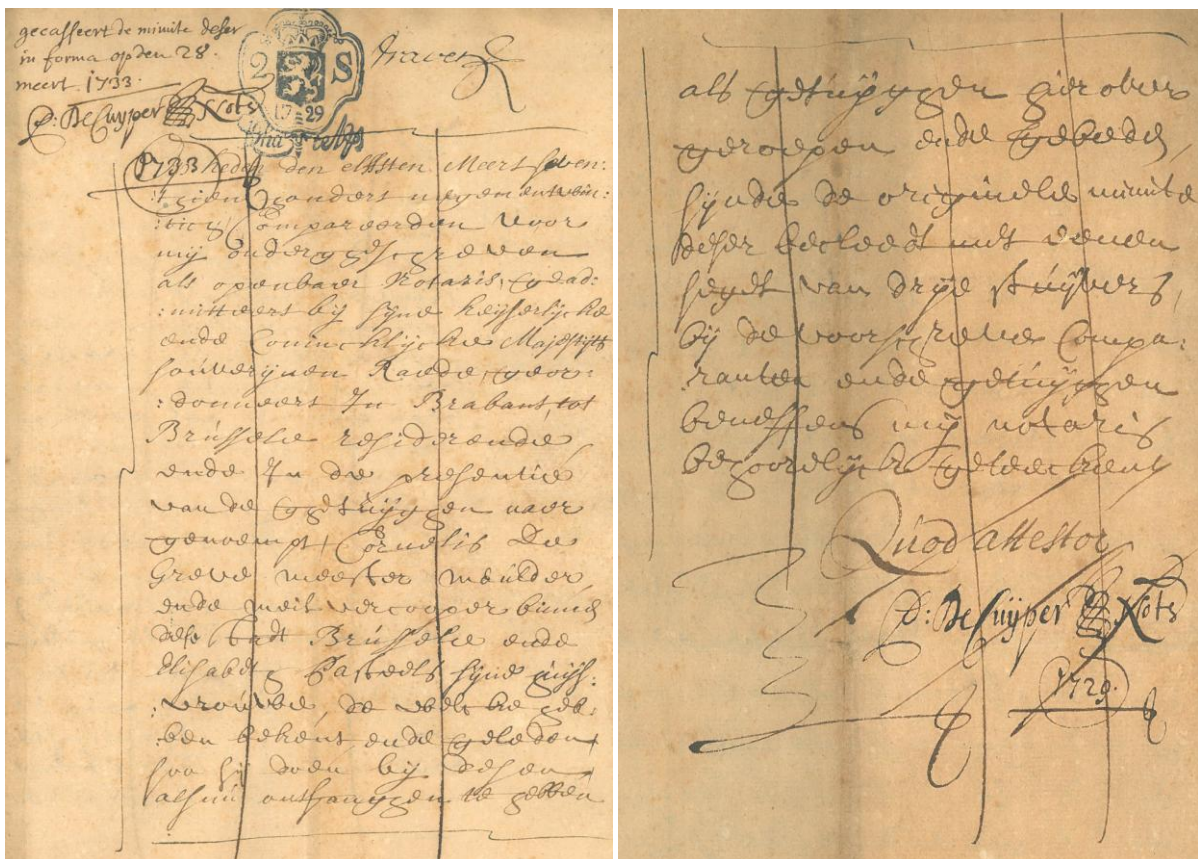 gecasseert de minute deser
in forma op den 28
meert 1733.
P: De Cuyper Nots
2 S
17 29
1733 heden den elfsten Meert seven:
:thien hondert negen entwin:
:tich Compareerden voor
mij ondergeschreven
als openbaer Notaris, gead:
:mitteert bij sijne keyserlycke
ende Coninchlijcke Majestyts
souverynen Raede, geor:
:donneert In Brabant, tot
Brussele residerende,
ende In de presentie
van de getuyggen naer
genoempt, Cornelis De
Greve meester meulder,
ende meel vercooper binnen
dese stadt Brussele ende
Elisabeth Pasteels syne huys:
:vrouwe, de welcke heb:
:ben bekent, ende geleden
soo sij doen bij desen
alsnu ontfanggen te hebben
als getuyggen hier over
geroepen ende gebeden,
synde de originele minute
deser becleedt met eenen
segel van drye stuyvers,
bij de voorschreve Compa:
:ranten ende getuyggen
beneffens mij notaris
behoorelyck geteeckent
Quod attestor
P: De Cuyper Nots
1729.